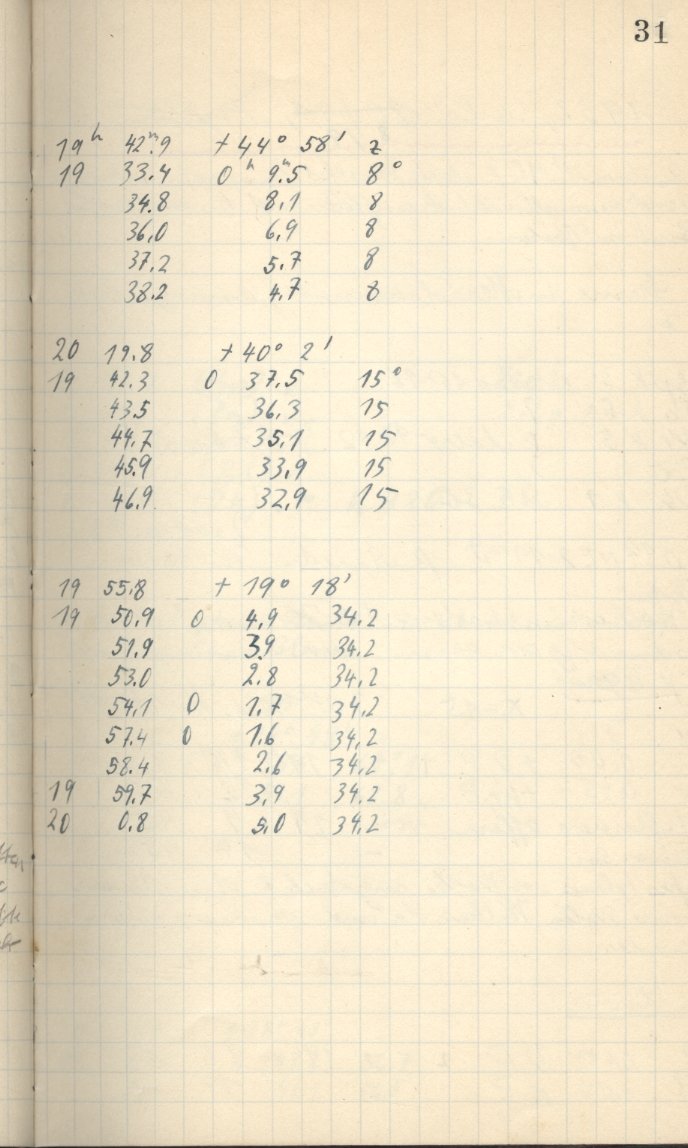 31
19ʰ 42ᵐ.9 + 44° 58' z
19 33.4 0ʰ 9ᵐ.5 8°
34.8 8.1 8
36.0 6.9 8
37.2 5.7 8
38.2 4.7 8
20 19.8 + 40° 2'
19 42.3 0 37.5 15°
43.5 36.3 15
44.7 35.1 15
45.9 33.9 15
46.9 32.9 15
19 55.8 + 19° 18'
19 50.9 0 4.9 34.2
51.9 3.9 34.2
53.0 2.8 34.2
54.1 0 1.7 34.2
57.4 0 1.6 34.2
58.4 2.6 34.2
19 59.7 3.9 34.2
20 0.8 5.0 34.2